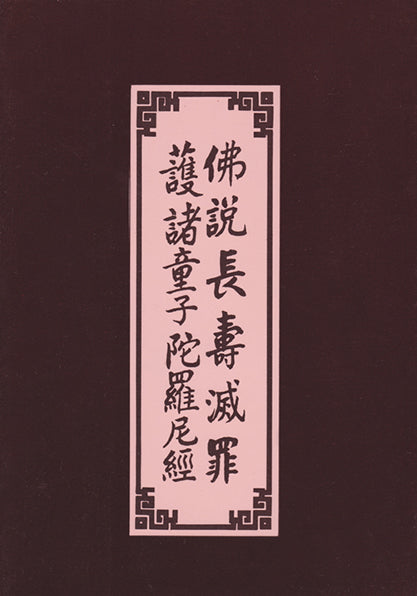 佛説長壽滅罪
護諸童子陀羅尼經